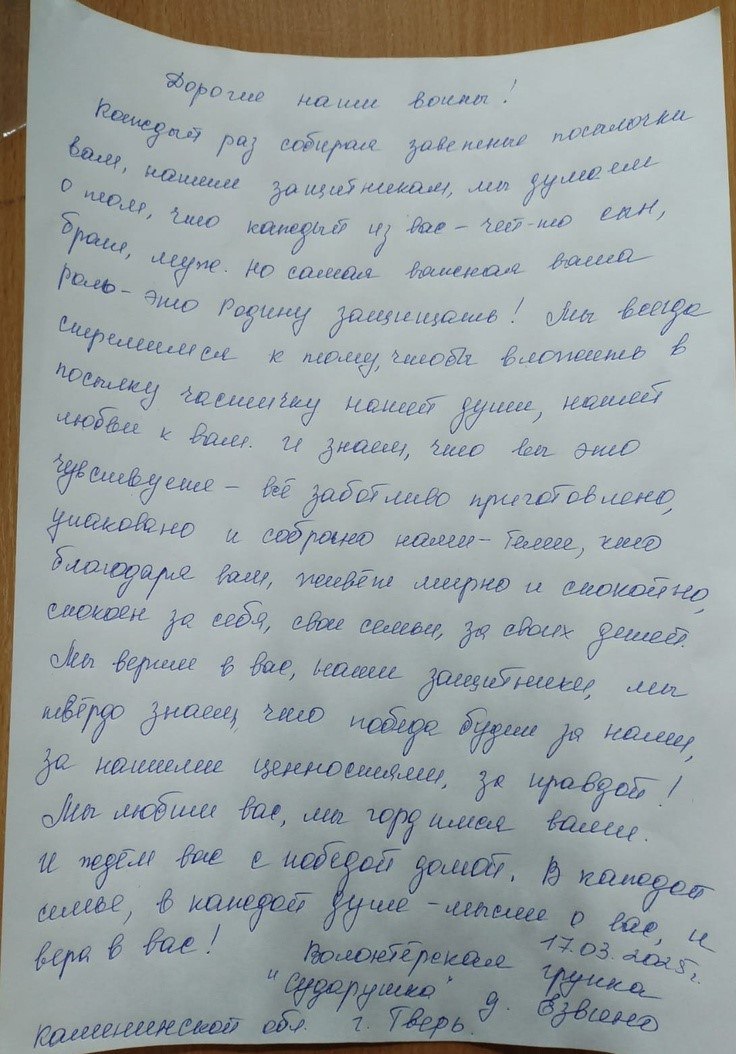 Дорогие наши воины!
Каждый раз собирая заветные посылочки
вам, нашим защитникам, мы думаем
о том, что каждый из вас - чей-то сын,
брат, муж. Но самая важная ваша
роль - это Родину защищать! Мы всегда
стремимся к тому, чтобы вложить в
посылку частичку нашей души, нашей
любви к вам. И знаем, что вы это
чувствуете - всё заботливо приготовлено,
упаковано и собрано нами - теми, кто
благодаря вам, живёт мирно и спокойно,
спокоен за себя, свои семьи, за своих детей.
Мы верим в вас, наши защитники, мы
твёрдо знаем, что победа будет за нами,
за нашими ценностями, за правдой!
Мы любим вас, мы гордимся вами.
И ждём вас с победой домой. В каждой
семье, в каждой душе - мысли о вас, и
вера в вас! 17.03.2025г.
Волонтёрская группа
"Сударушка" д.
обл. г. Тверь.